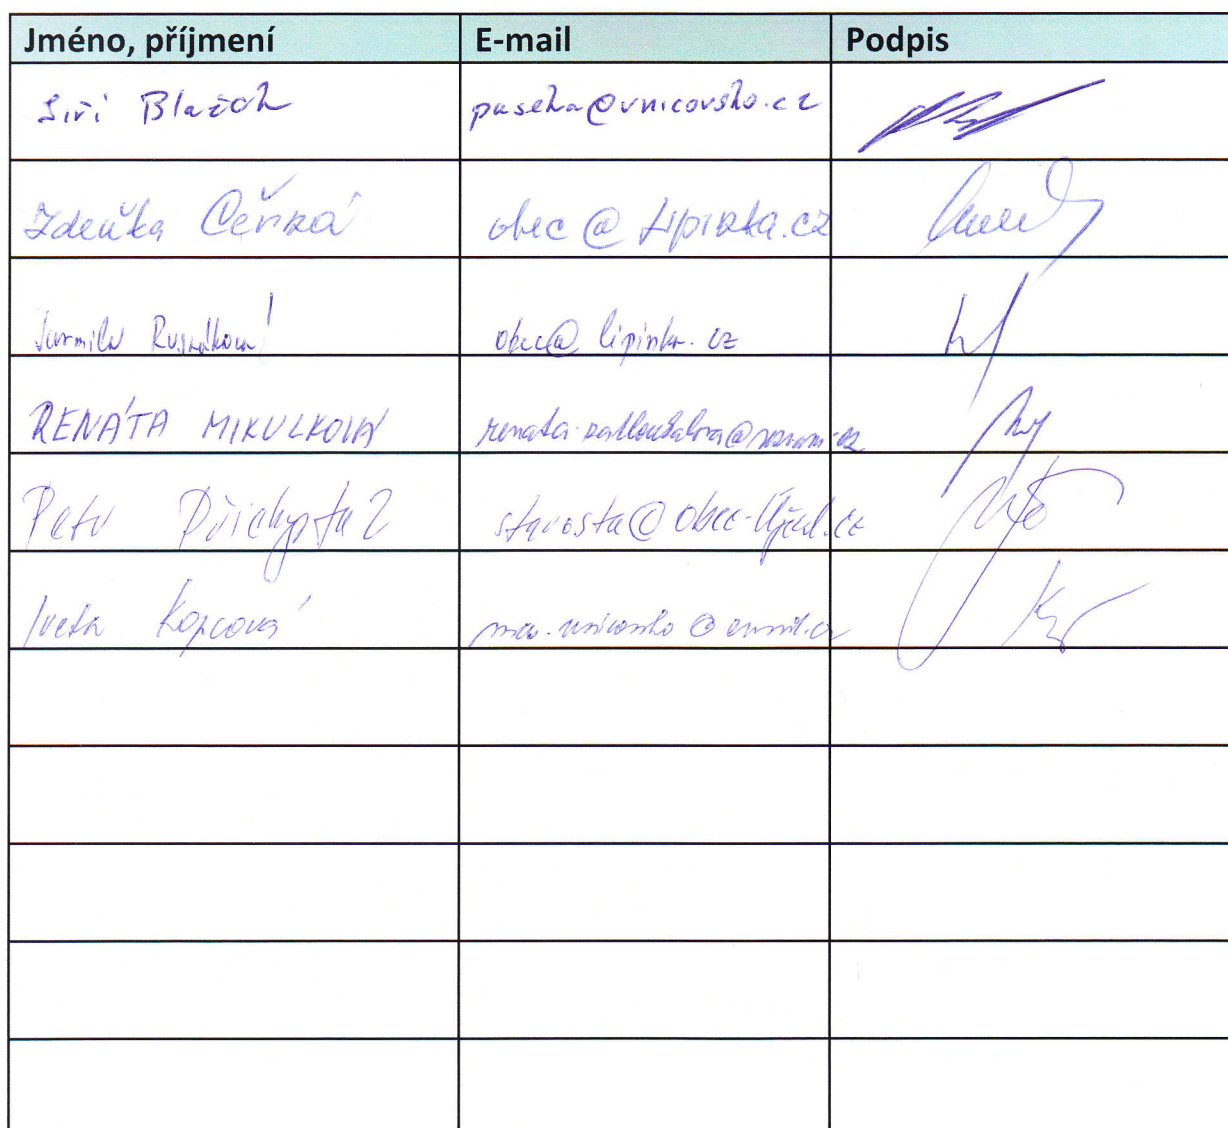 Jméno, příjmení E-mail Podpis
Jiří Blažek paseka@unicovsko.cz
Zdeňka Černá obec@Lipinka.cz
Jarmila obec@lipinka.cz
RENÁTA MIKULKOVÁ renata.zatloukalova@seznam.cz
Petr Přichystal starosta@obec-Újezd.cz
Iveta Kopcová mas.unicovsko@email.cz